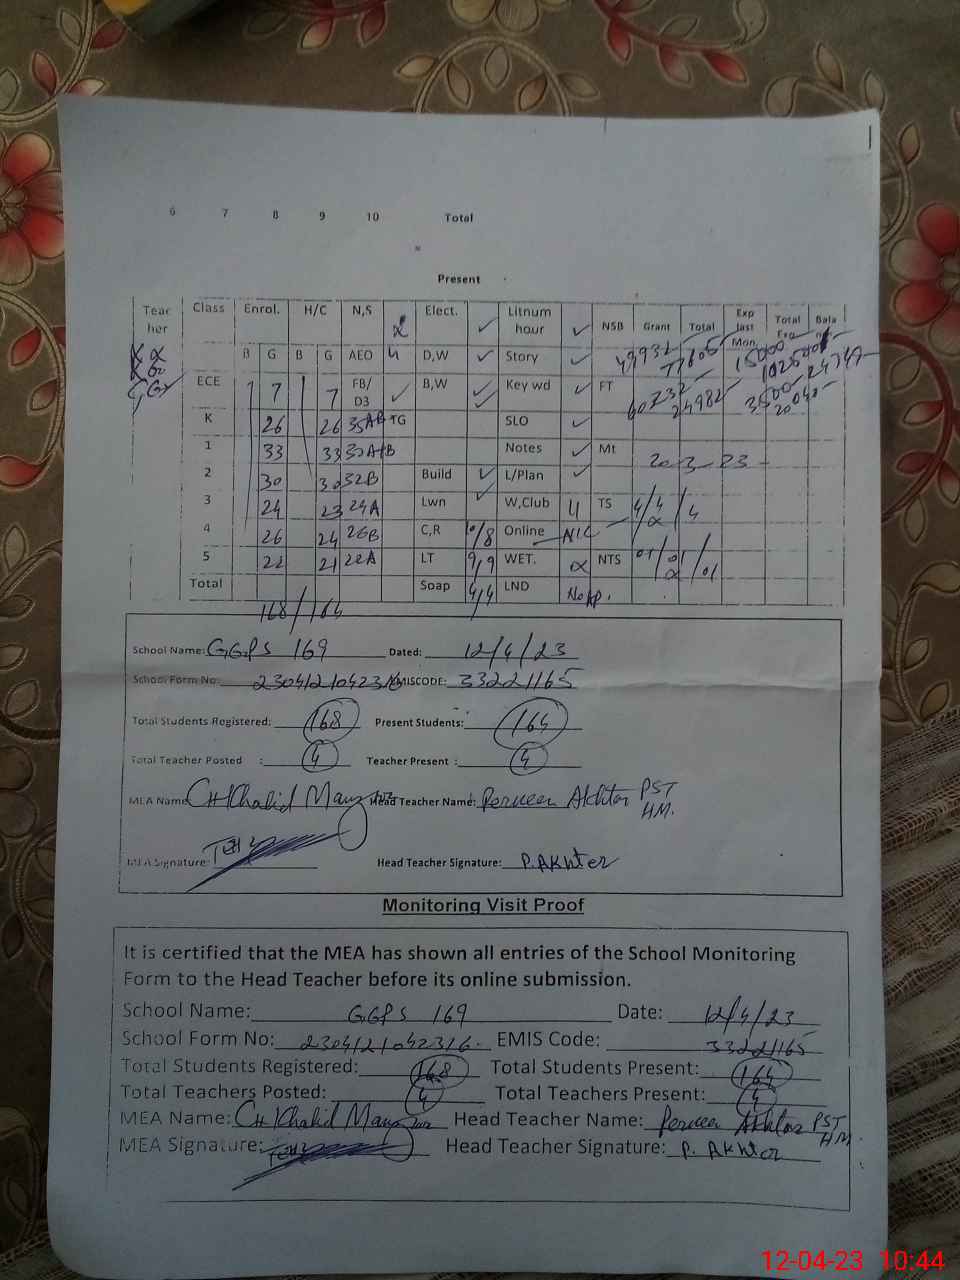 6 7 8 9 10 Total
Present
Teac her Class Enrol. H/C N,S Elect. ✓ Litnum hour ✓ NSB Grant Total Exp last Mon. Total Bala
B G B G AEO 4 D,W ✓ Story ✓ 49932
ECE 7 7 FB/ D3 ✓ B,W ✓ Key wd ✓ FT 60732 24982 3500
K 26 26 35AB TG SLO ✓
1 33 33 Notes ✓ Mt 20-3-23
2 30 30 32B Build ✓ L/Plan ✓
3 24 23 24A Lwn ✓ W,Club 4 TS 4/4/4
4 26 24 26B C,R Online NIL
5 22 21 22A LT 9/9 WET. NTS 01/01/01
Total Soap 4/4 LND
168/164
School Name: GGPS 169 Dated: 12/4/23
School Form No: EMISCODE: 33221165
Total Students Registered: 168 Present Students: 164
Total Teacher Posted : 4 Teacher Present : 4
MEA Name: CH Khalid Head Teacher Name: Perveen Akhtar PST
HM.
MEA Signature: Head Teacher Signature: P. AKhter
Monitoring Visit Proof
It is certified that the MEA has shown all entries of the School Monitoring
Form to the Head Teacher before its online submission.
School Name: GGPS 169 Date: 12/4/23
School Form No: 2304121042316 EMIS Code: 33221165
Total Students Registered: 168 Total Students Present: 164
Total Teachers Posted: 4 Total Teachers Present: 4
MEA Name: CH Khalid Head Teacher Name: Perveen Akhtar PST
HM
MEA Signature: Head Teacher Signature: P. AKhter
12-04-23 10:44